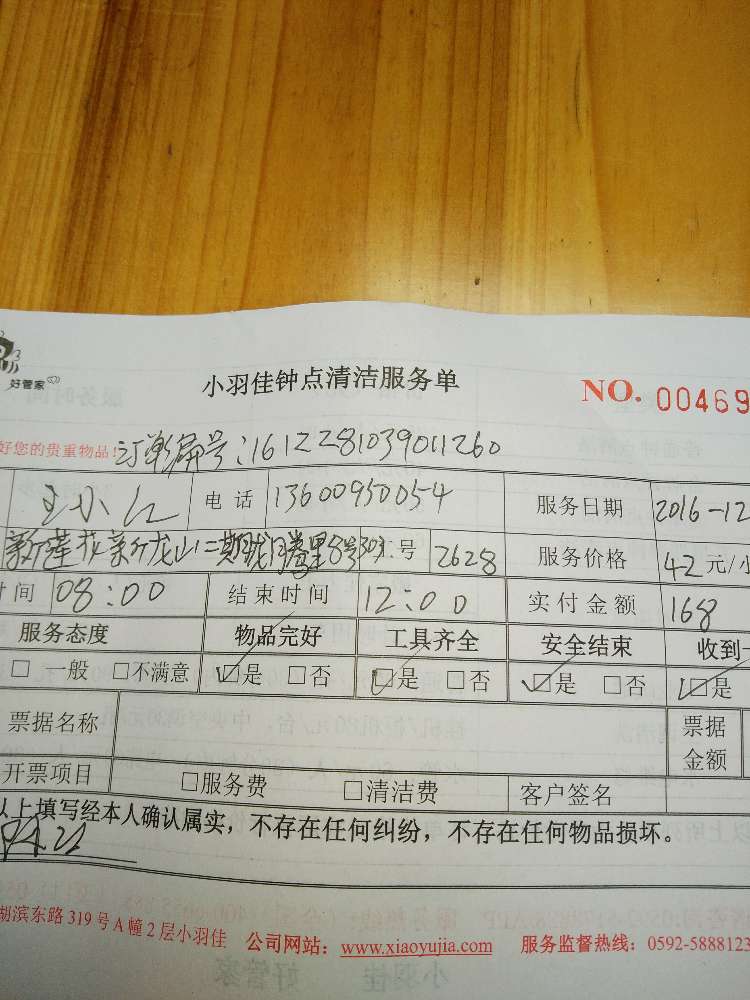 好管家
小羽佳钟点清洁服务单
NO. 00469
好您的贵重物品!
订单编号:161228103901126０
王小红 电话 13600950054 服务日期 2016-12
新龙山二期 8号303 号 2628 服务价格 42元/小
时间 08:00 结束时间 12:00 实付金额 168
服务态度 物品完好 工具齐全 安全结束 收到一
□ 一般 □不满意 ☑是 □否 ☑是 □否 ☑是 □否 ☑是
票据名称 票据金额
开票项目 □服务费 □清洁费 客户签名
以上填写经本人确认属实,不存在任何纠纷,不存在任何物品损坏。
胡滨东路319号A幢2层小羽佳 公司网站:www.xiaoyujia.com 服务监督热线:0592-5888123